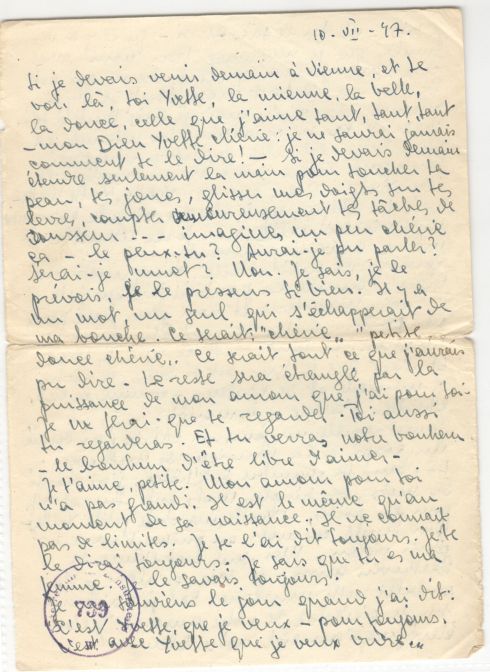 10-VII-47.
Si je devais venir demain à Vienne, et te
voir là, toi Yvette, la mienne, la belle,
la douce, celle que j'aime tant, tant, tant
- mon Dieu Yvette chérie: je ne saurai jamais
comment te le dire! - Si je devais demain
étendre seulement la main pour toucher ta
peau, tes joues, glisser mes doigts sur tes
levres, compter amoureusement tes tâches de
rousseur --- imagines un peu chérie
ça - le peux-tu? Aurai-je pu parler?
Serai-je muet? Non. Je sais, je le
prévois, je le pressens si bien. Il y a
un mot, un seul qui s'échapperait de
ma bouche. Ce serait "chérie", "petite,
douce chérie". Ce serait tout ce que j'aurais
pu dire. Le reste sera étranglé par la
puissance de mon amour que j'ai pour toi.
Je ne ferai que te regarder. Toi aussi
tu regarderas. Et tu verras notre bonheur
- le bonheur d'être libre d'aimer -
Je t'aime, petite. Mon amour pour toi
n'a pas grandi. Il est le même qu'au
moment de sa naissance. Il ne connaît
pas de limites. Je te l'ai dit toujours. Je te
le dirai toujours. Je sais que tu es ma
femme. le savais toujours.
Je souviens le jour quand j'ai dit.
C'est Yvette que je veux - pour toujours.
C'est avec Yvette que je veux vivre...
739